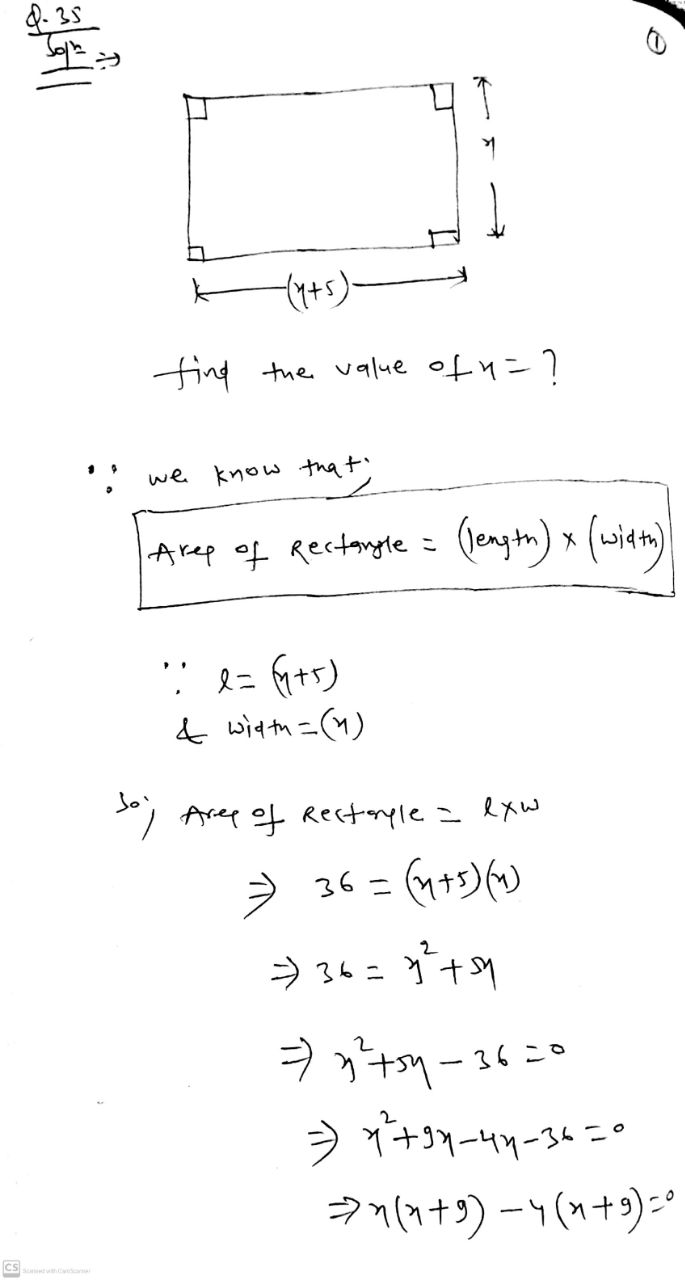 Q.35
①
Soln ⇒
x
(x+5)
find the value of x = ?
∵ we know that;
Area of Rectangle = (length) × (width)
∵ l = (x+5)
& width = (x)
So; Area of Rectangle = l×w
⇒ 36 = (x+5)(x)
⇒ 36 = x²+5x
⇒ x²+5x-36=0
⇒ x²+9x-4x-36=0
⇒ x(x+9)-4(x+9)=0
CS Scanned with CamScanner